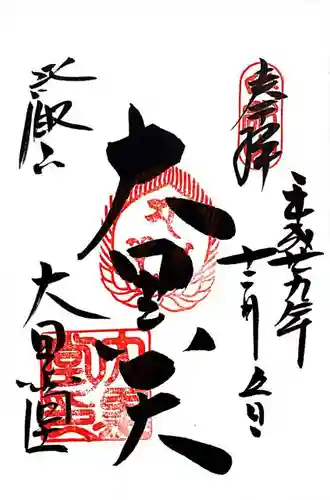 奉拝
平成廿九年
十二月五日
大黒天
比叡山
大黒堂